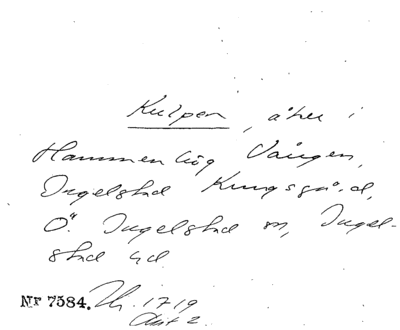 Kulpen, åker i
Hammenhög Vången,
Ingelstad Kungsgård,
Ö. Ingelstad sn, Ingel-
stad hd
Nr 7584. 1719
Akt 2